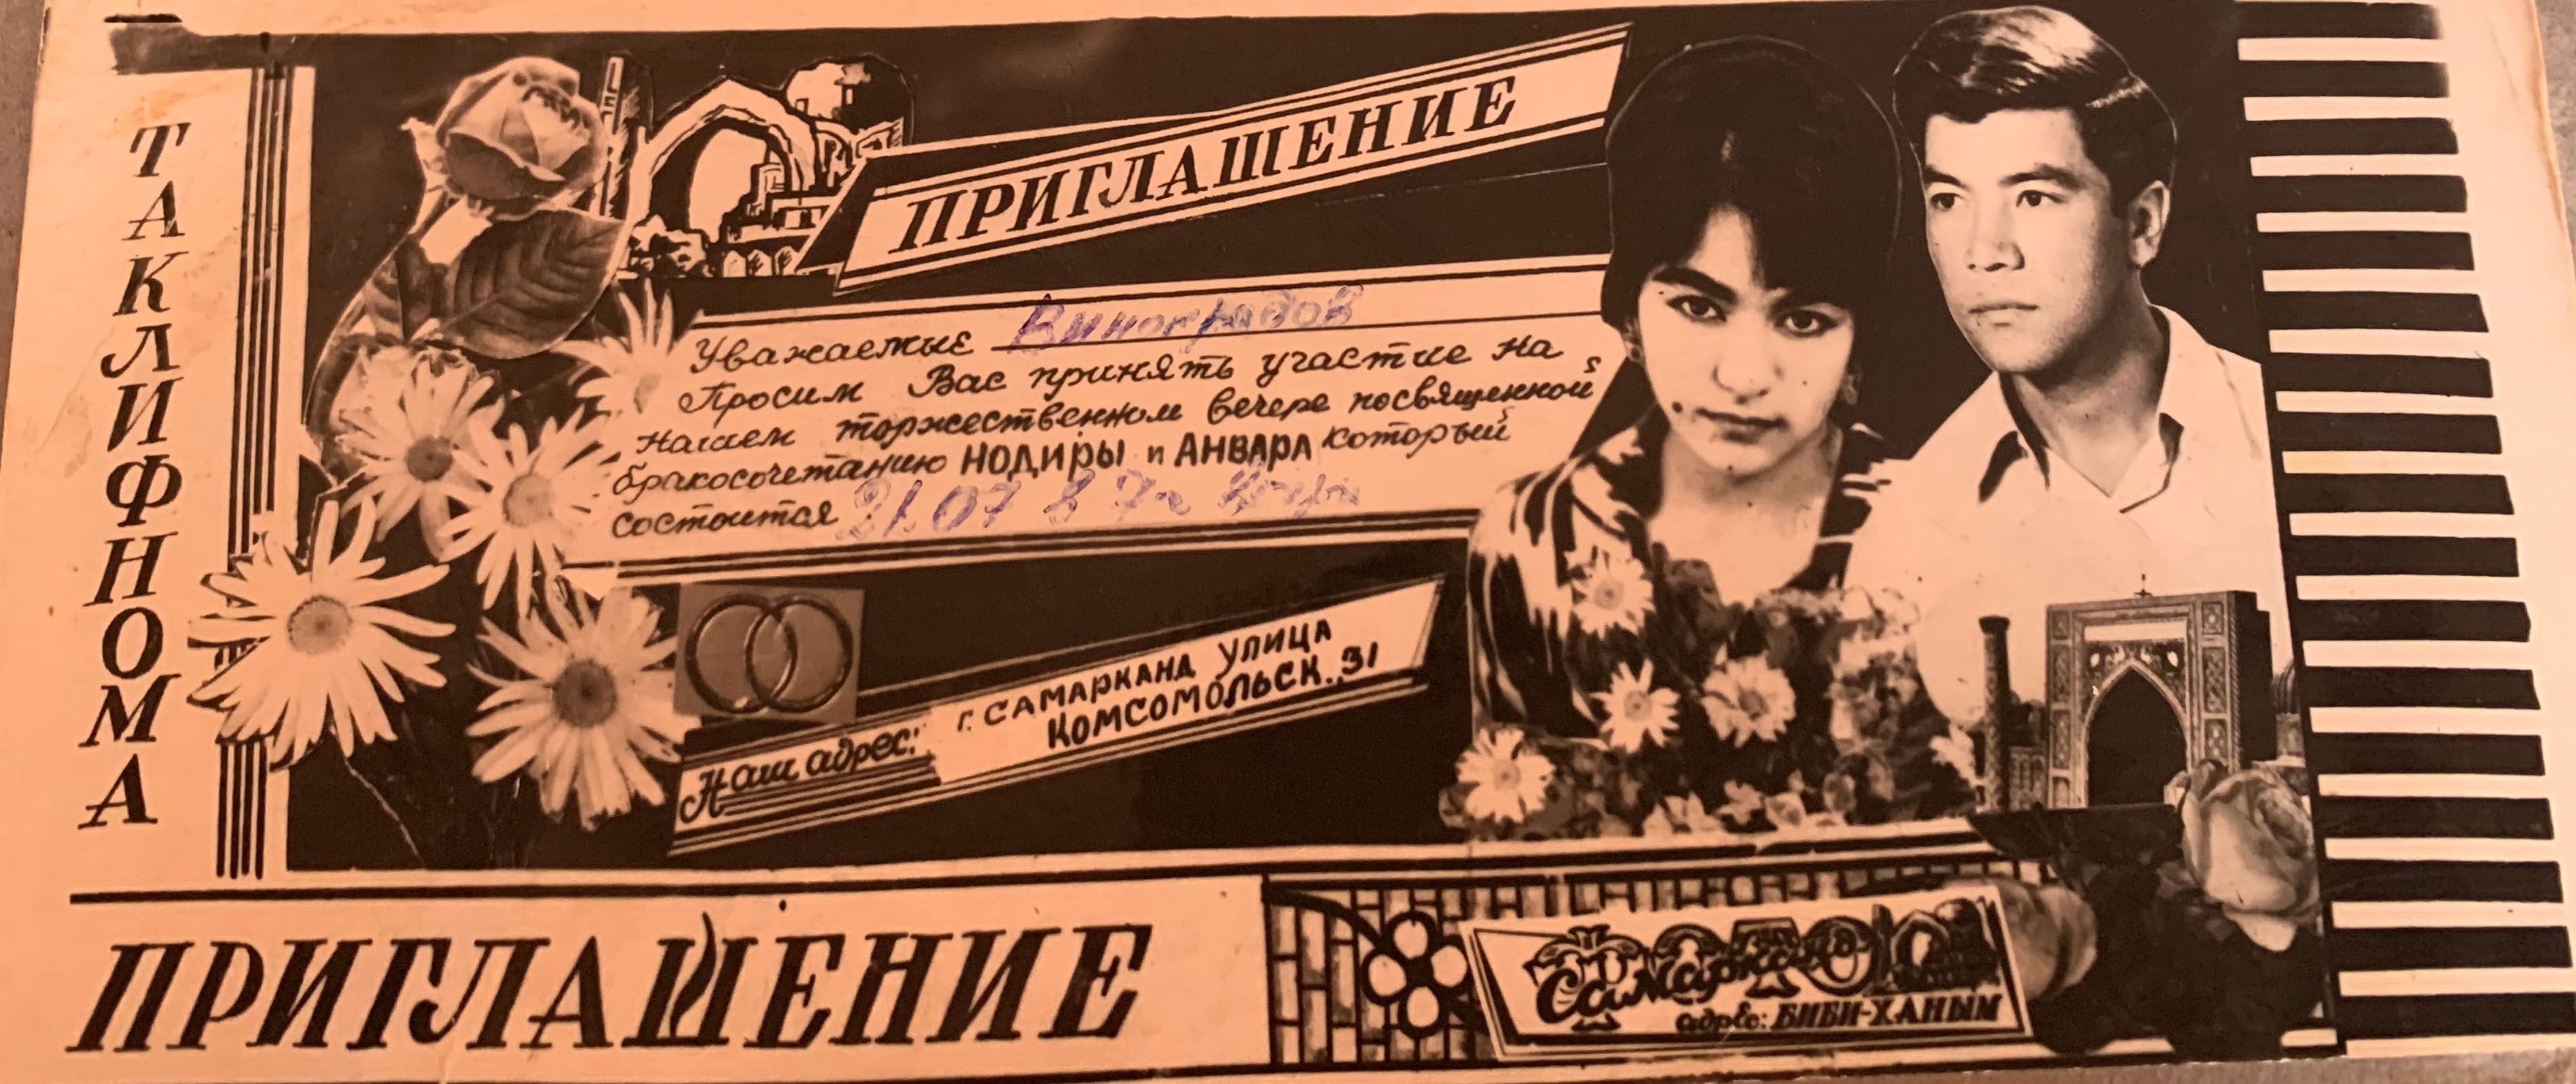 ТАКЛИФНОМА
ПРИГЛАШЕНИЕ
Уважаемые Виноградов
Просим Вас принять участие на
нашем торжественном вечере посвященной
бракосочетанию НОДИРЫ и АНВАРА который
состоится 31.07 в 7
Наш адрес: г. САМАРКАНД УЛИЦА
КОМСОМОЛЬСК., 31
ПРИГЛАШЕНИЕ
ФОТО
Самарканд
адрес: БИБИ-ХАНЫМ